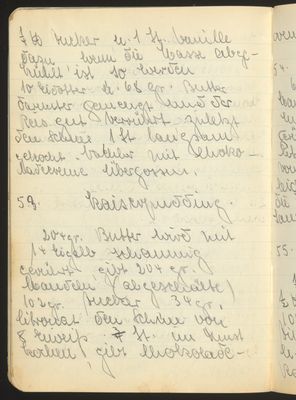 ¼ ℔ Zucker u. 1 St. Vanille
dazu wenn die Masse abge-
kühlt ist so werden
10 Eidotter u. 68 gr. Butter
darunter gemengt und der
Reis gut verrührt zuletzt
den Schnee 1 St langsam
gekocht. Vorher mit Choko-
ladecreme übergossen.
59. Kaiserpudding.
204 gr. Butter wird mit
14 Eigelb schaumig
gerührt, gibt 204 gr.
Mandeln (abgeschälte)
102 gr. Zucker 34 gr.
Citronat den Schnee von
8 Eiweiß St. im Dunst
kochen, gibt Chokolade-